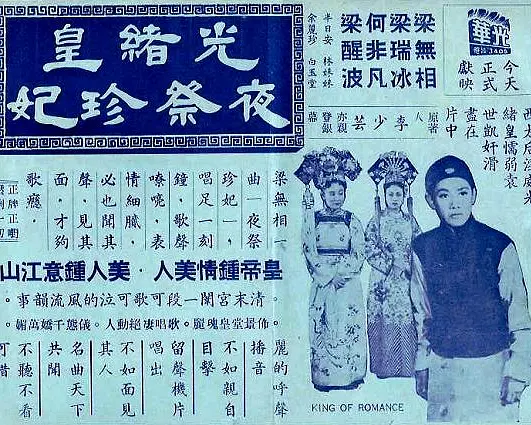 光緒皇
夜祭珍妃
梁無相
梁瑞冰
何非凡
梁醒波
半日安 林妹妹
余麗珍 白玉堂
華光
今天
正式
獻映
原著人李少芸亦親登銀幕
緒皇懦弱衰
世凱奸滑
盡在
片中
梁無相一
曲一夜祭
珍妃一，
唱足一刻
鐘，歌聲
嘹喨，表
情細膩，
必也聞其
聲，見其
面，才夠
歌癮。
皇帝鍾情美人・美人鍾意江山
清末宮闈一段可歌可泣的風流韻事。
堂皇瑰麗。歌唱凄絕動人。儀態千嬌萬媚
麗的呼聲
播音
不如親自
目擊
留聲機片
唱出
不如面見
其人
名聞天下
共
不聽不看
可惜
KING OF ROMANCE